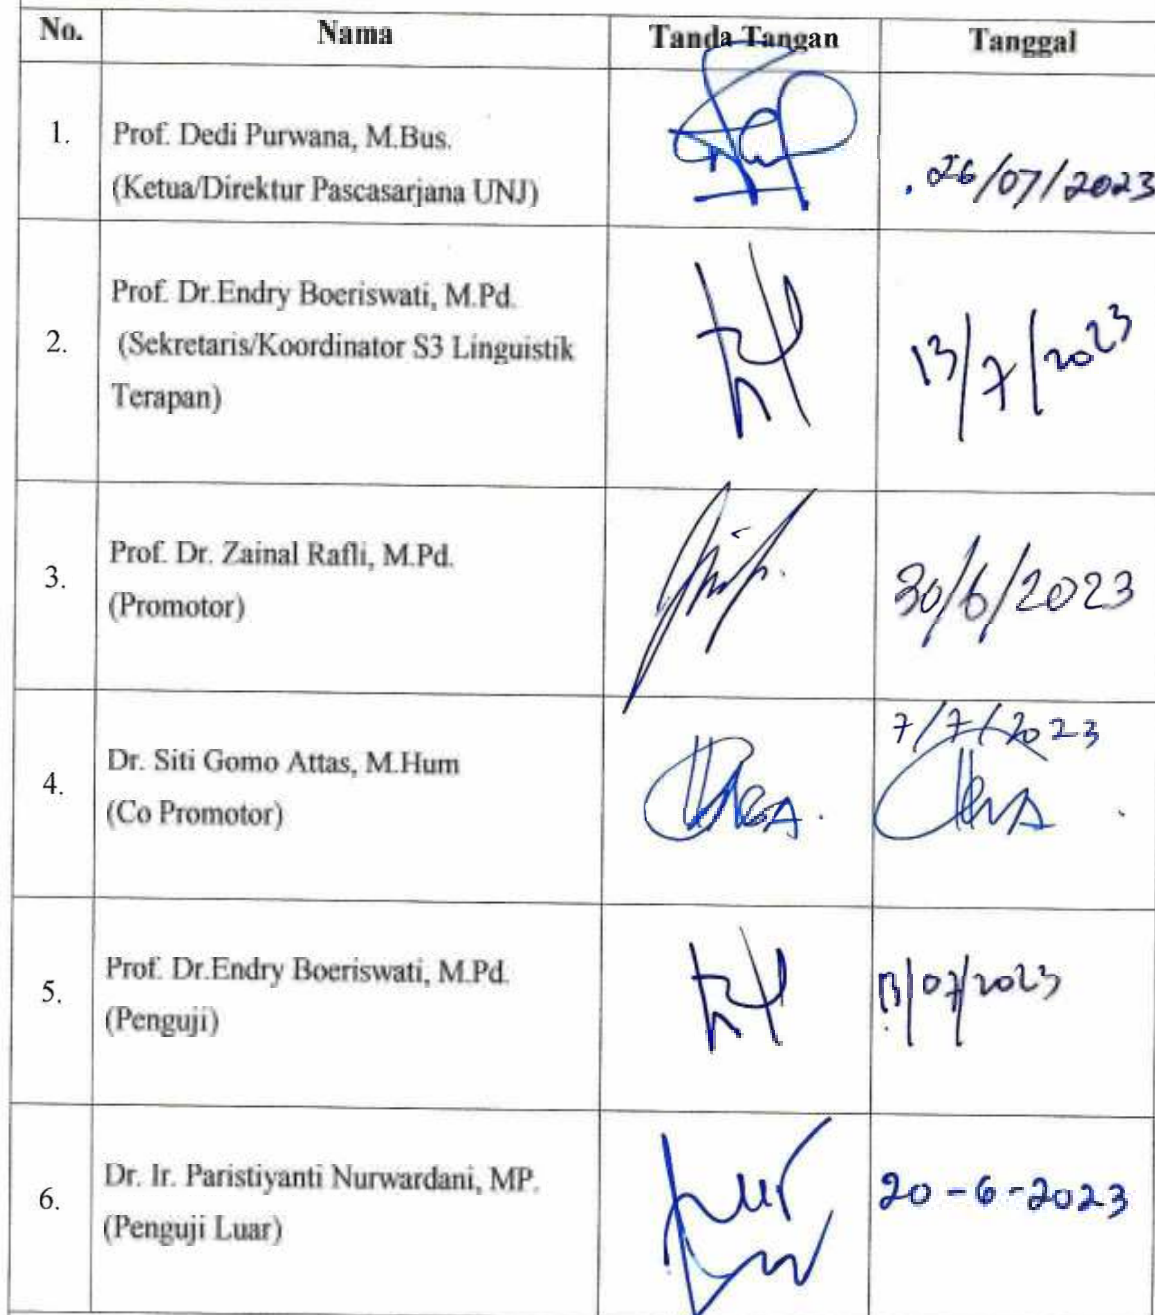 No. Nama Tanda Tangan Tanggal
1. Prof. Dedi Purwana, M.Bus.
(Ketua/Direktur Pascasarjana UNJ)
26/07/2023
2. Prof. Dr.Endry Boeriswati, M.Pd.
(Sekretaris/Koordinator S3 Linguistik
Terapan)
13/7/2023
3. Prof. Dr. Zainal Rafli, M.Pd.
(Promotor)
30/6/2023
4. Dr. Siti Gomo Attas, M.Hum
(Co Promotor)
7/7/2023
5. Prof. Dr.Endry Boeriswati, M.Pd.
(Penguji)
13/07/2023
6. Dr. Ir. Paristiyanti Nurwardani, MP.
(Penguji Luar)
20-6-2023